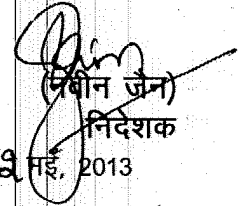 (नवीन जैन)
निदेशक
2 मई, 2013